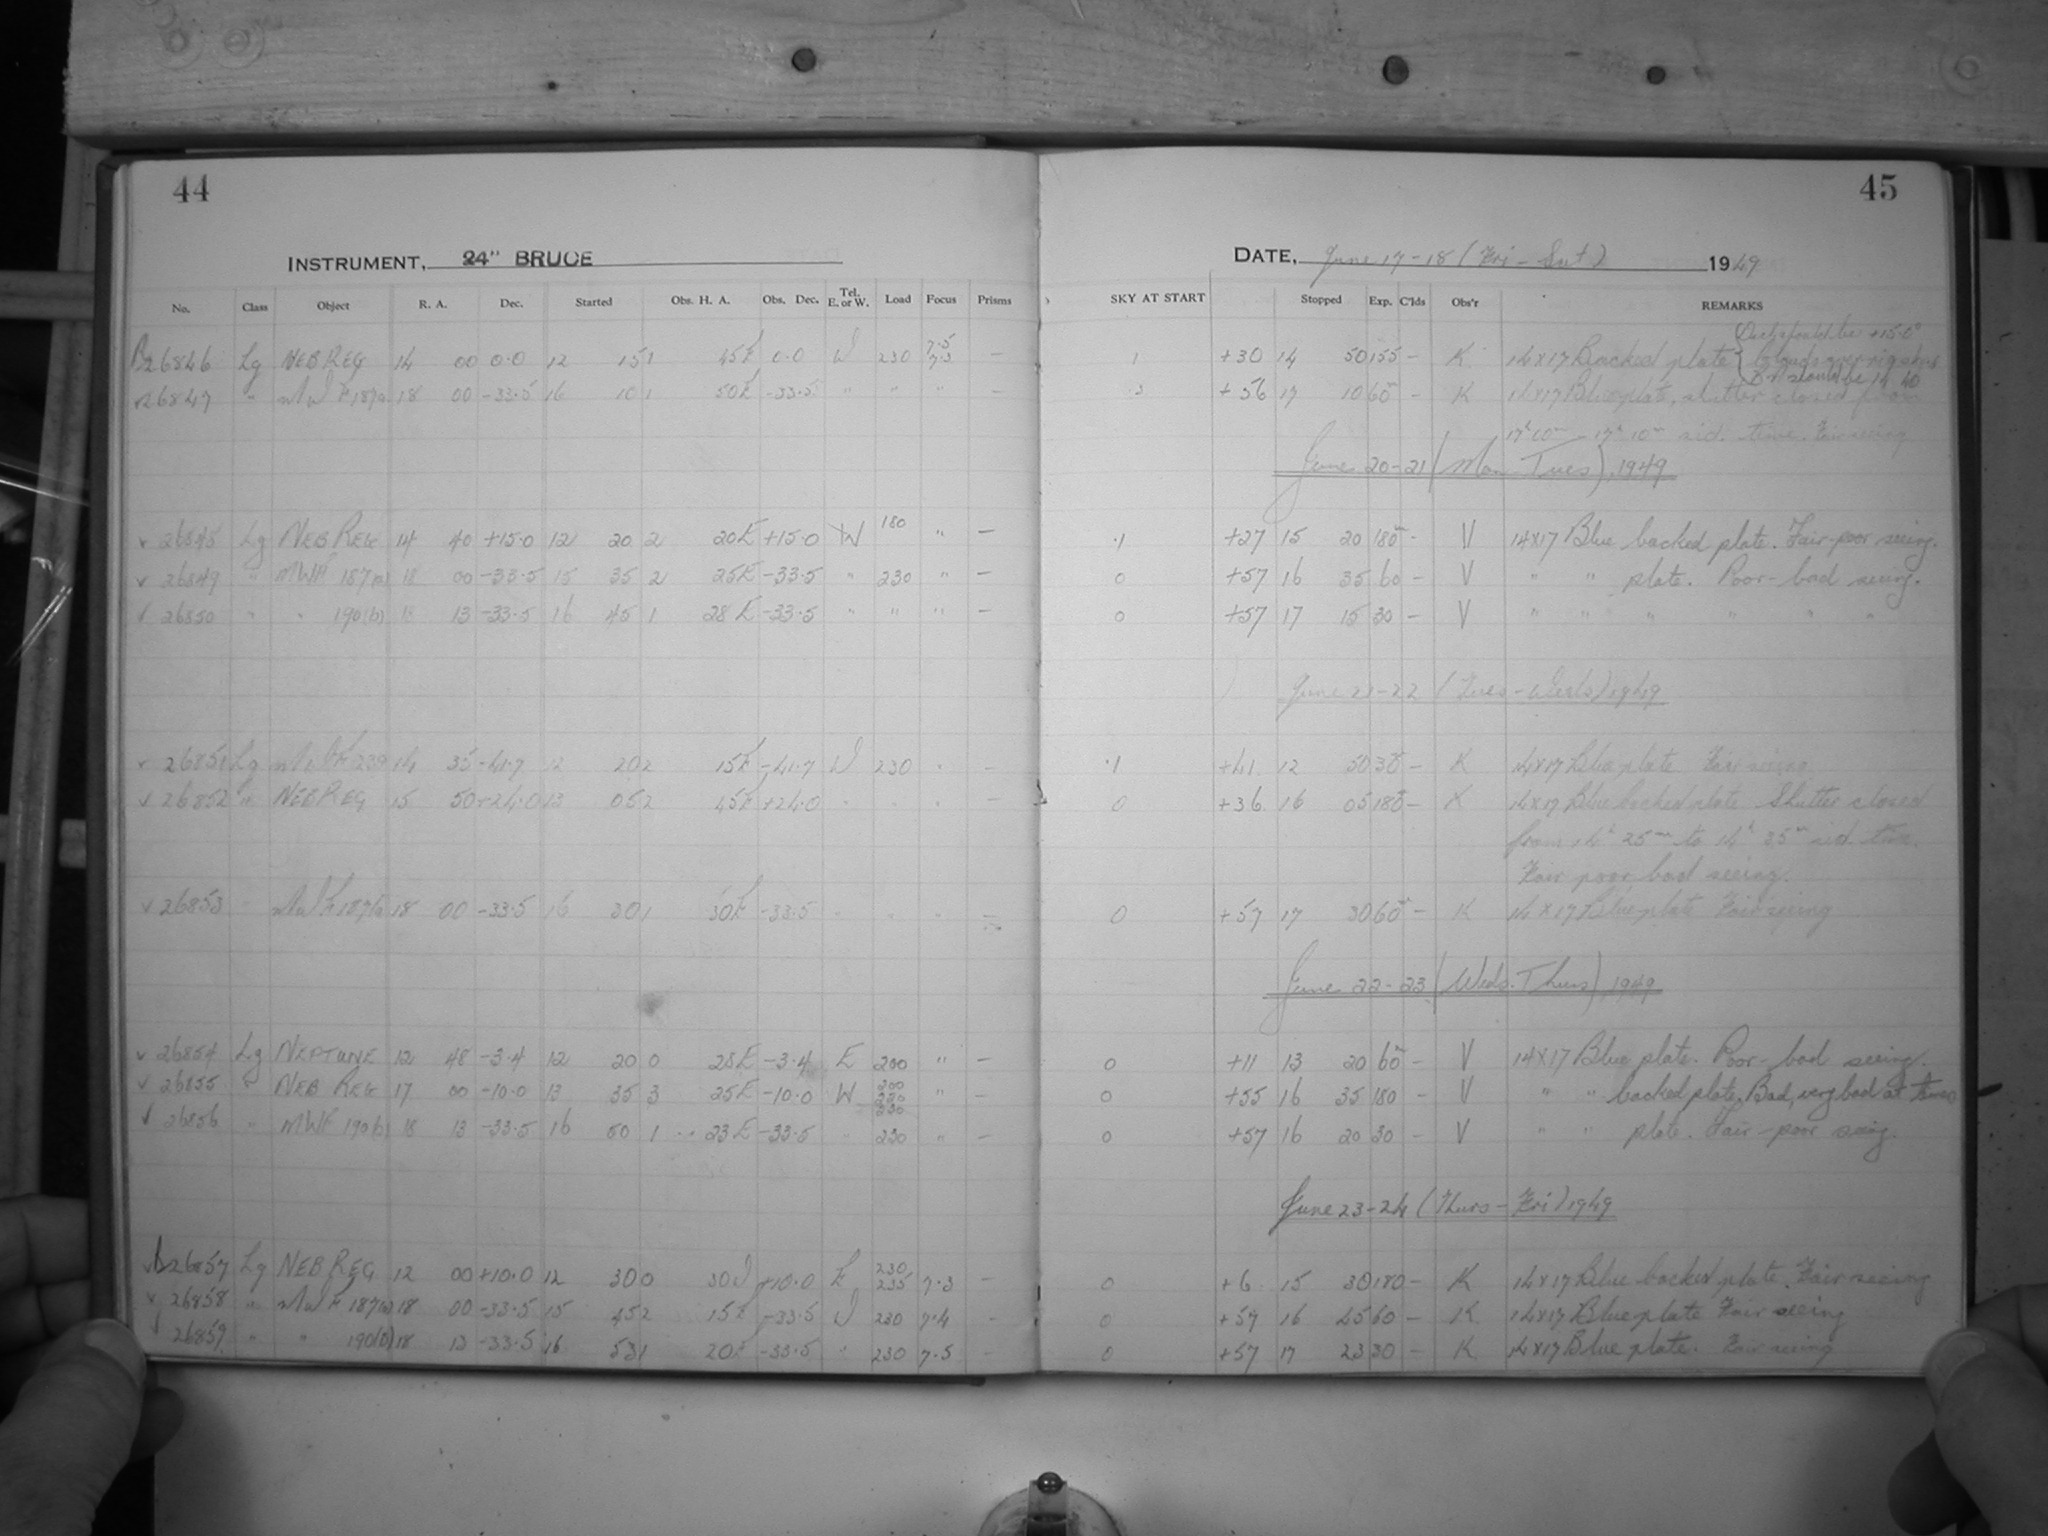 44
INSTRUMENT, 24" BRUCE
No. Class Object R. A. Dec. Started Obs. H. A. Obs. Dec. Tel. E. or W. Load Focus Prisms
B26846 Lg NEB REG 14 00 0.0 12 15 1 45E 0.0 W 230 7.5 7.3 —
26847 " MWF 187(a) 18 00 -33.5 16 10 1 50E -33.5 " " " —
26848 Lg NEB REG 14 40 +15.0 12 20 2 20E +15.0 W 180 " —
26849 " MWF 187(a) 18 00 -33.5 15 35 2 25E -33.5 " 230 " —
26850 " " 190(b) 18 13 -33.5 16 45 1 28E -33.5 " " " —
26851 Lg MWF 239 14 35 -41.7 12 20 2 15E -41.7 W 230 " —
26852 " NEB REG 15 50 +24.0 13 05 2 45E +24.0 " " " —
26853 " MWF 187(a) 18 00 -33.5 16 30 1 30E -33.5 " " " —
26854 Lg NEPTUNE 12 48 -3.4 12 20 0 28E -3.4 E 200 " —
26855 " NEB REG 17 00 -10.0 13 35 3 25E -10.0 W 200 220 230 " —
26856 " MWF 190(b) 18 13 -33.5 16 50 1 23E -33.5 " 230 " —
B26857 Lg NEB REG 12 00 +10.0 12 30 0 30W +10.0 E 230 235 7.3 —
26858 " MWF 187(a) 18 00 -33.5 15 45 2 15E -33.5 W 230 7.4 —
26859 " " 190(b) 18 13 -33.5 16 53 1 20E -33.5 " 230 7.5 —
45
DATE, June 17-18 (Fri-Sat) 1949
SKY AT START Stopped Exp. C'lds Obs'r REMARKS
Dec should be +15.0°
1 +30 14 50 155 — K 14x17 Backed plate
R.A should be 14 40
3 +56 17 10 60 — K 14x17 Blue plate, shutter closed from
17h 10m sid. time. Fair seeing
June 20-21 (Mon-Tues), 1949
.1 +27 15 20 180m — V 14x17 Blue backed plate. Fair-poor seeing.
0 +57 16 35 60 — V " " plate. Poor-bad seeing.
0 +57 17 15 30 — V " " " " " "
June 21-22 (Tues-Weds) 1949
.1 +41 12 50 30 — K 14x17 Blue plate Fair seeing
0 +36 16 05 180 — K 14x17 Blue backed plate Shutter closed
from 14h 25m to 14h 35m sid. time.
Fair poor bad seeing.
0 +57 17 30 60 — K 14x17 Blue plate Fair seeing
June 22-23 (Weds-Thurs), 1949
0 +11 13 20 60m — V 14x17 Blue plate. Poor-bad seeing.
0 +55 16 35 180 — V " " backed plate. Bad, very bad at times
0 +57 16 20 30 — V " " plate. Fair-poor seeing.
June 23-24 (Thurs-Fri) 1949
0 +6 15 30 180 — K 14x17 Blue backed plate. Fair seeing
0 +57 16 45 60 — K 14x17 Blue plate Fair seeing
0 +57 17 23 30 — K 14x17 Blue plate. Fair seeing